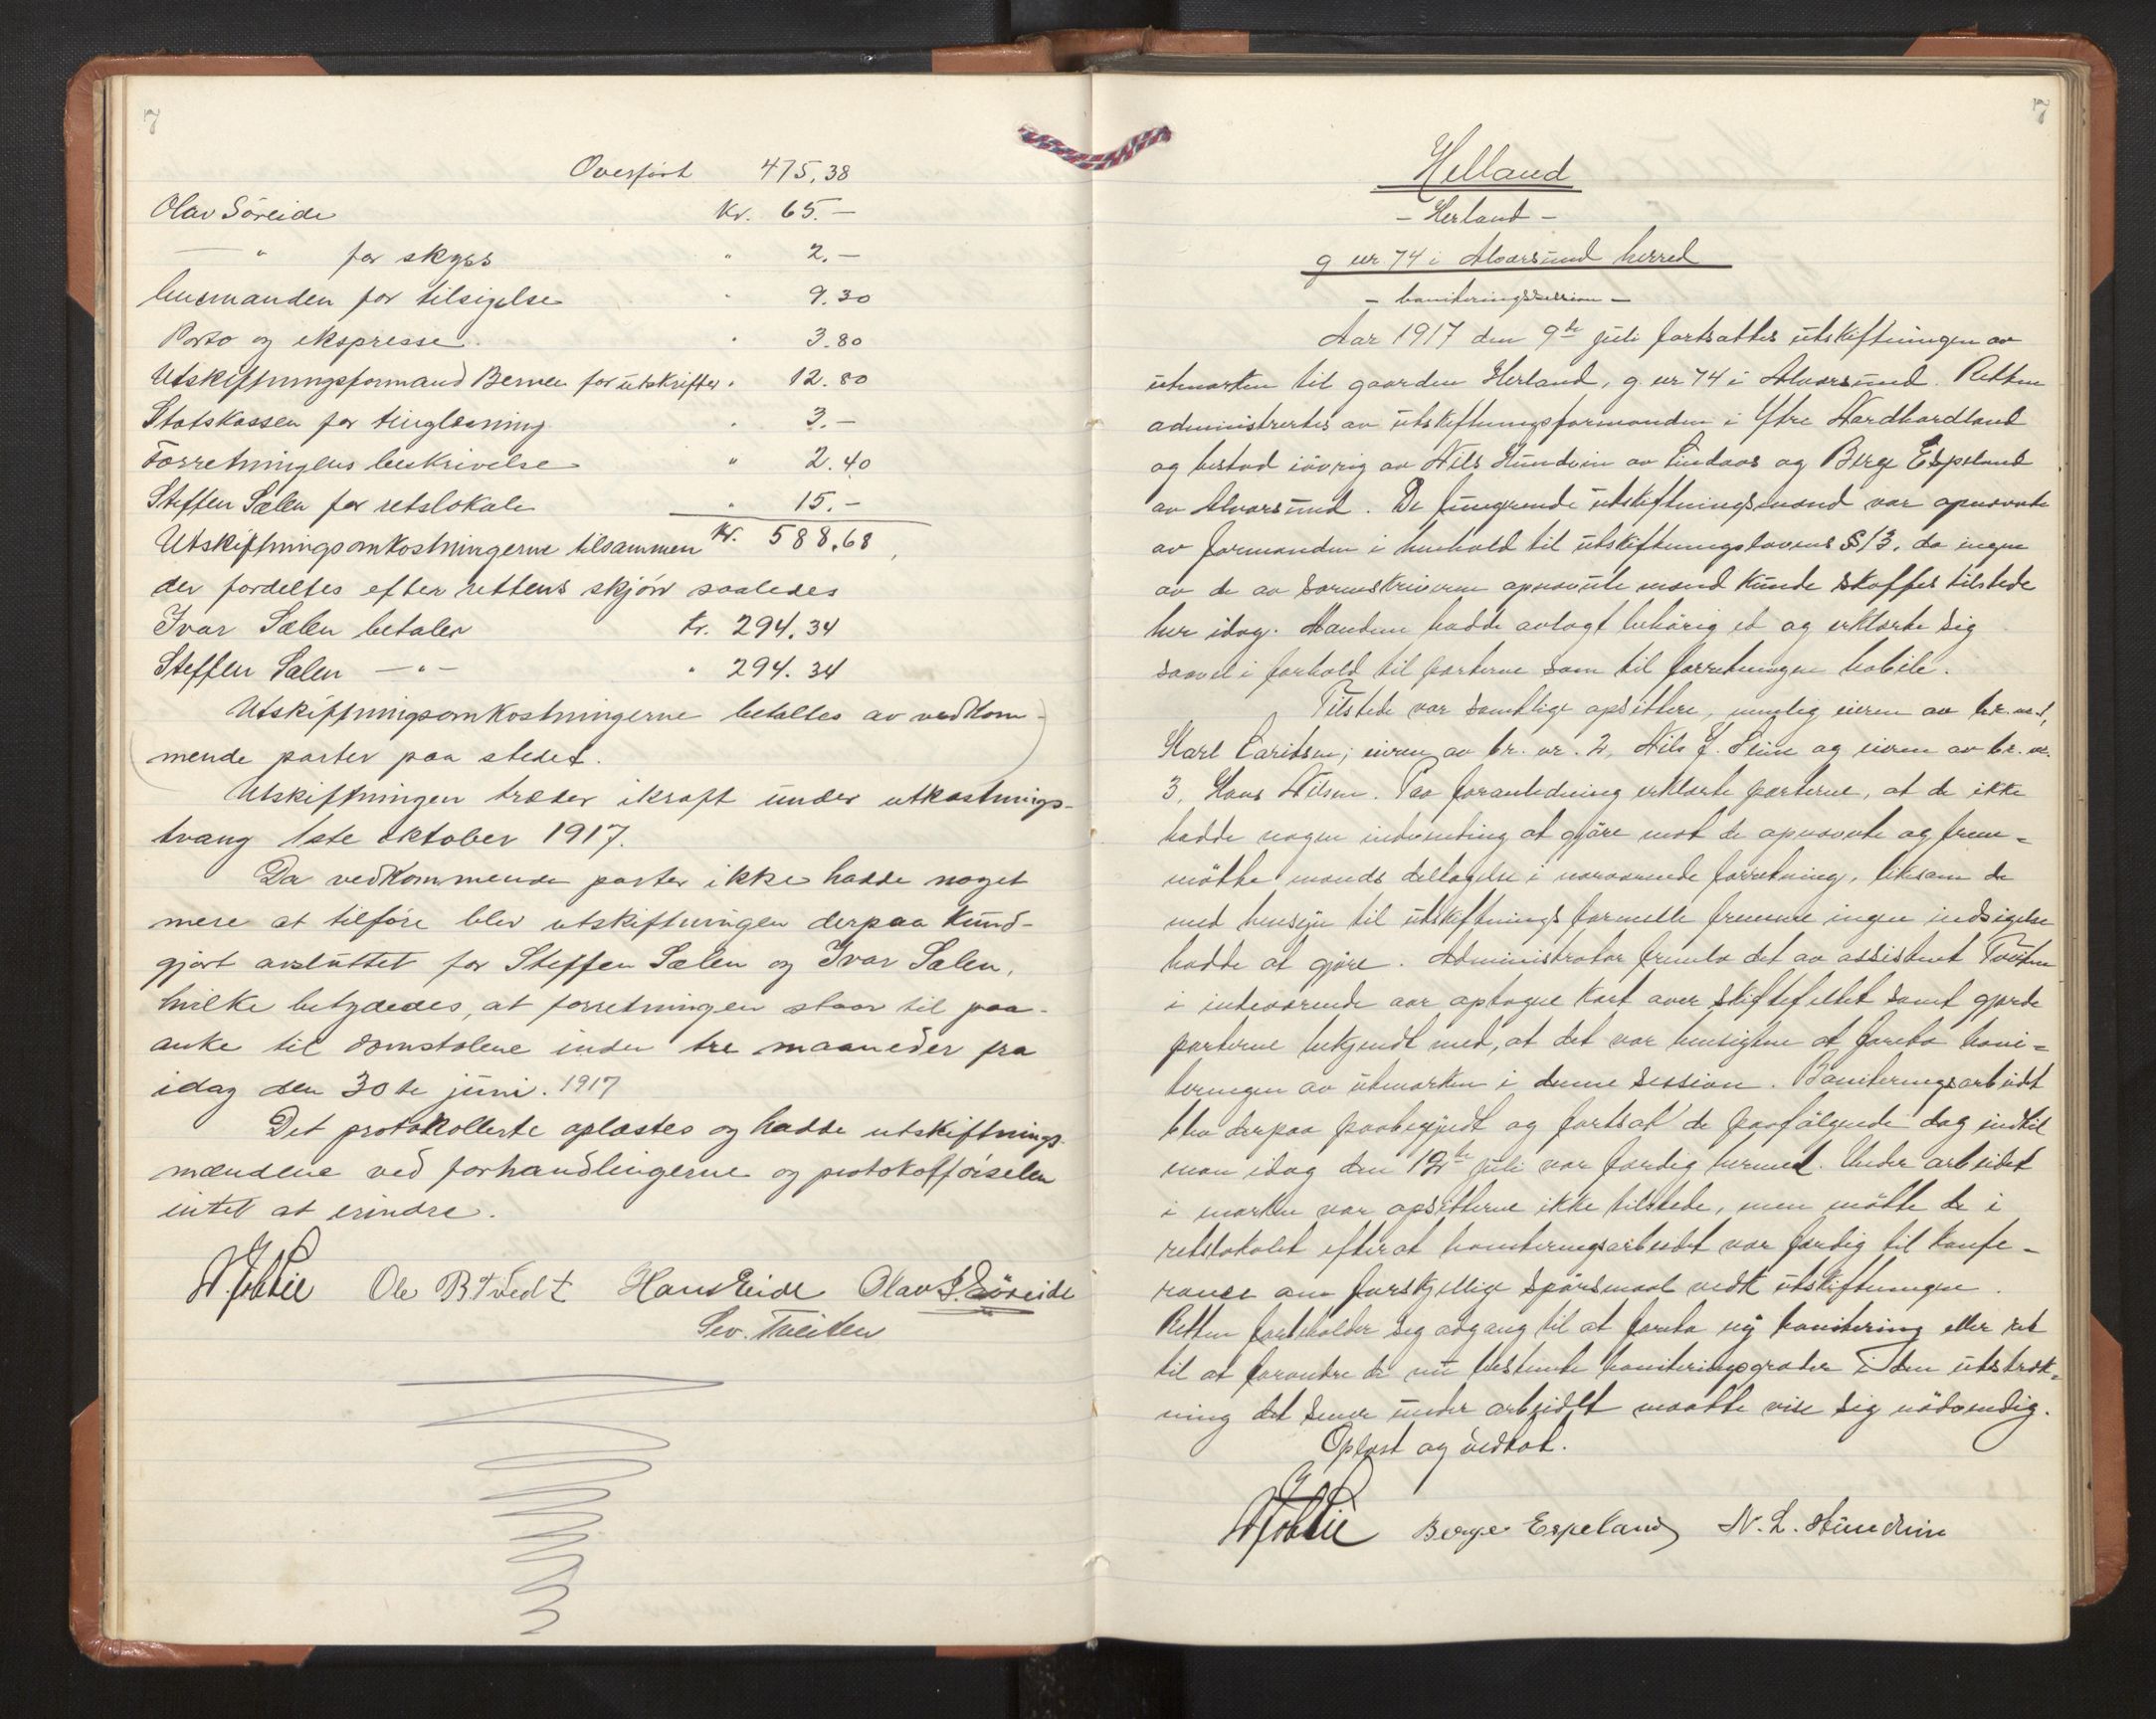 7
Overført 475,38
Olav Søreide Kr. 65.—
— " for skyss " 2.—
lensmanden for tilsigelse " 9.30
Porto og ekspresse " 3.80
Utskiftningsformand Berner for utskrifter " 12.80
Statskassen for tinglæsning " 3.—
Forretningens beskrivelse " 2.40
Steffen Sælen for retslokale " 15.—
Utskiftningsomkostningerne tilsammen Kr. 588,68,
der fordeltes efter rettens skjøn saaledes
Ivar Sælen betaler Kr. 294.34
Steffen Sælen —"— " 294.34
Utskiftningsomkostningerne betaltes av vedkom-
mende parter paa stedet.
Utskiftningen træder ikraft under utkastnings-
tvang 1ste oktober 1917.
Da vedkommende parter ikke hadde noget
mere at tilføre blev utskiftningen derpaa kund-
gjort avsluttet for Steffen Sælen og Ivar Sælen,
hvilke betydedes, at forretningen staar til paa-
anke til domstolene inden tre maaneder fra
idag den 30te juni. 1917
Det protokollerte oplæstes og hadde utskiftnings-
mændene ved forhandlingerne og protokolførselen
intet at erindre.
Ole B Tvedt Hans Eide Olav S. Søreide
Sev. Tveiten
7
Helland
- Herland -
g nr 74 i Alversund herred
- boniteringssession -
Aar 1917 den 9de juli fortsattes utskiftningen av
utmarken til gaarden Herland, g nr 74 i Alversund. Retten
administrertes av utskiftningsformanden i Ytre Nordhordland
og bestod iøvrig av Nils Hundvin av Lindaas og Berge Espeland
av Alversund. De fungerende utskiftningsmænd var opnævnte
av formanden i henhold til utskiftningslovens § 13, da ingen
av de av sorenskriveren opnævnte mænd kunde skaffes tilstede
her idag. Mændene hadde avlagt behørig ed og erklærte sig
saavel i forhold til parterne som til forretningen habile.
Tilstede var samtlige opsittere, nemlig eieren av br. nr. 1,
Karl Laritsen; eieren av br. nr. 2, Nils J. Heim og eieren av br. nr.
3, Hans Nilsen. Paa foranledning erklærte parterne, at de ikke
hadde nogen indvending at gjøre mot de opnævnte og frem-
møtte mænds deltagelse i nærværende forretning, liksom de
med hensyn til utskiftnings formelle fremme ingen indsigelse
hadde at gjøre. Administrator fremla det av assistent Tveiten
i indeværende aar optagne kart over skiftefeltet samt gjorde
parterne bekjendt med, at det var hensigten at foreta boni-
teringen av utmarken i denne session. Boniteringsarbeidet
blev derpaa paabegyndt og fortsat de paafølgende dag indtil
man idag den 12te juli var færdig hermed. Under arbeidet
i marken var opsitterne ikke tilstede, men møtte de i
retslokalet efterat boniteringsarbeidet var færdig til konfe-
rance om forskjellige spørsmaal vedk utskiftningen.
Retten forbeholder seg adgang til at foreta ny bonitering eller ret
til at forandre de nu bestemte boniteringsgrader i den utstræk-
ning det senere under arbeidet maatte vise sig nødvendig.
Oplæst og vedtat.
Berge Espeland N. L. Hundvin